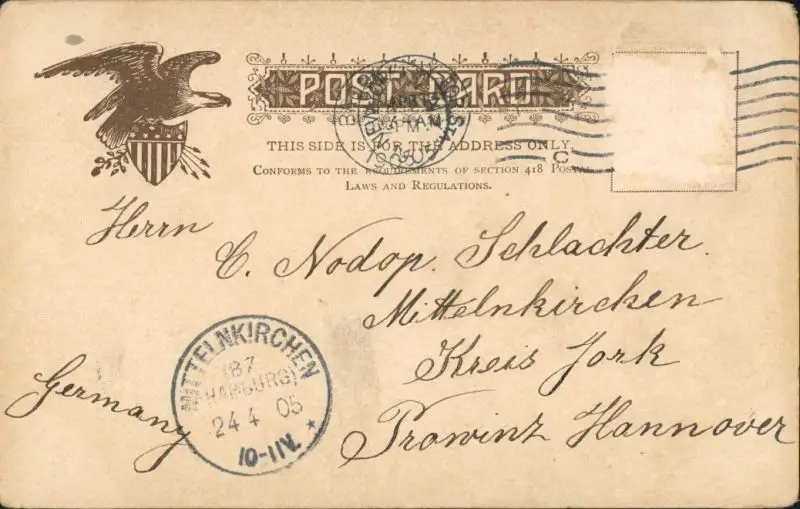 POST CARD
THIS SIDE IS FOR THE ADDRESS ONLY.
CONFORMS TO THE REQUIREMENTS OF SECTION 418 POSTAL
LAWS AND REGULATIONS.
1905
C
Herrn
C. Nodop. Schlachter.
Mittelnkirchen
Kreis Jork
Prowinz Hannover
Germany
MITTELNKIRCHEN
(BZ
HAMBURG)
24 4 05
10-11V.